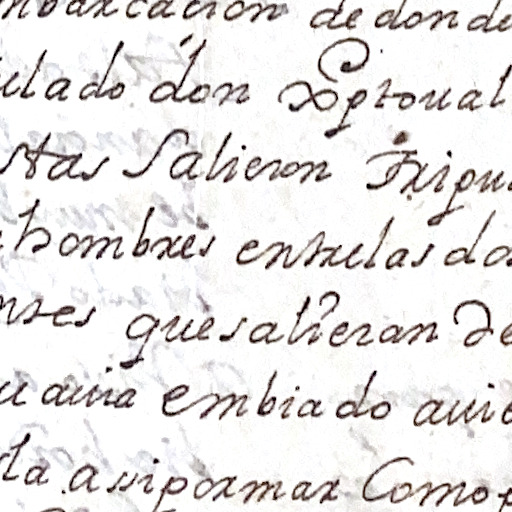 mbarcacion de donde
ulado don xptoual
stas Salieron Tripu
hombres entrelas do
ntes quesalieran de
u auia embiado auie
ta assipormar Como p